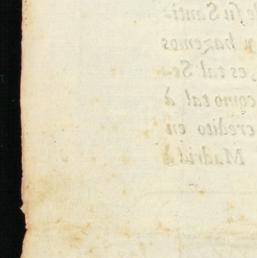 de su Santi-
y hazemos
, es tal Se-
como tal à
credito en
Madrid à